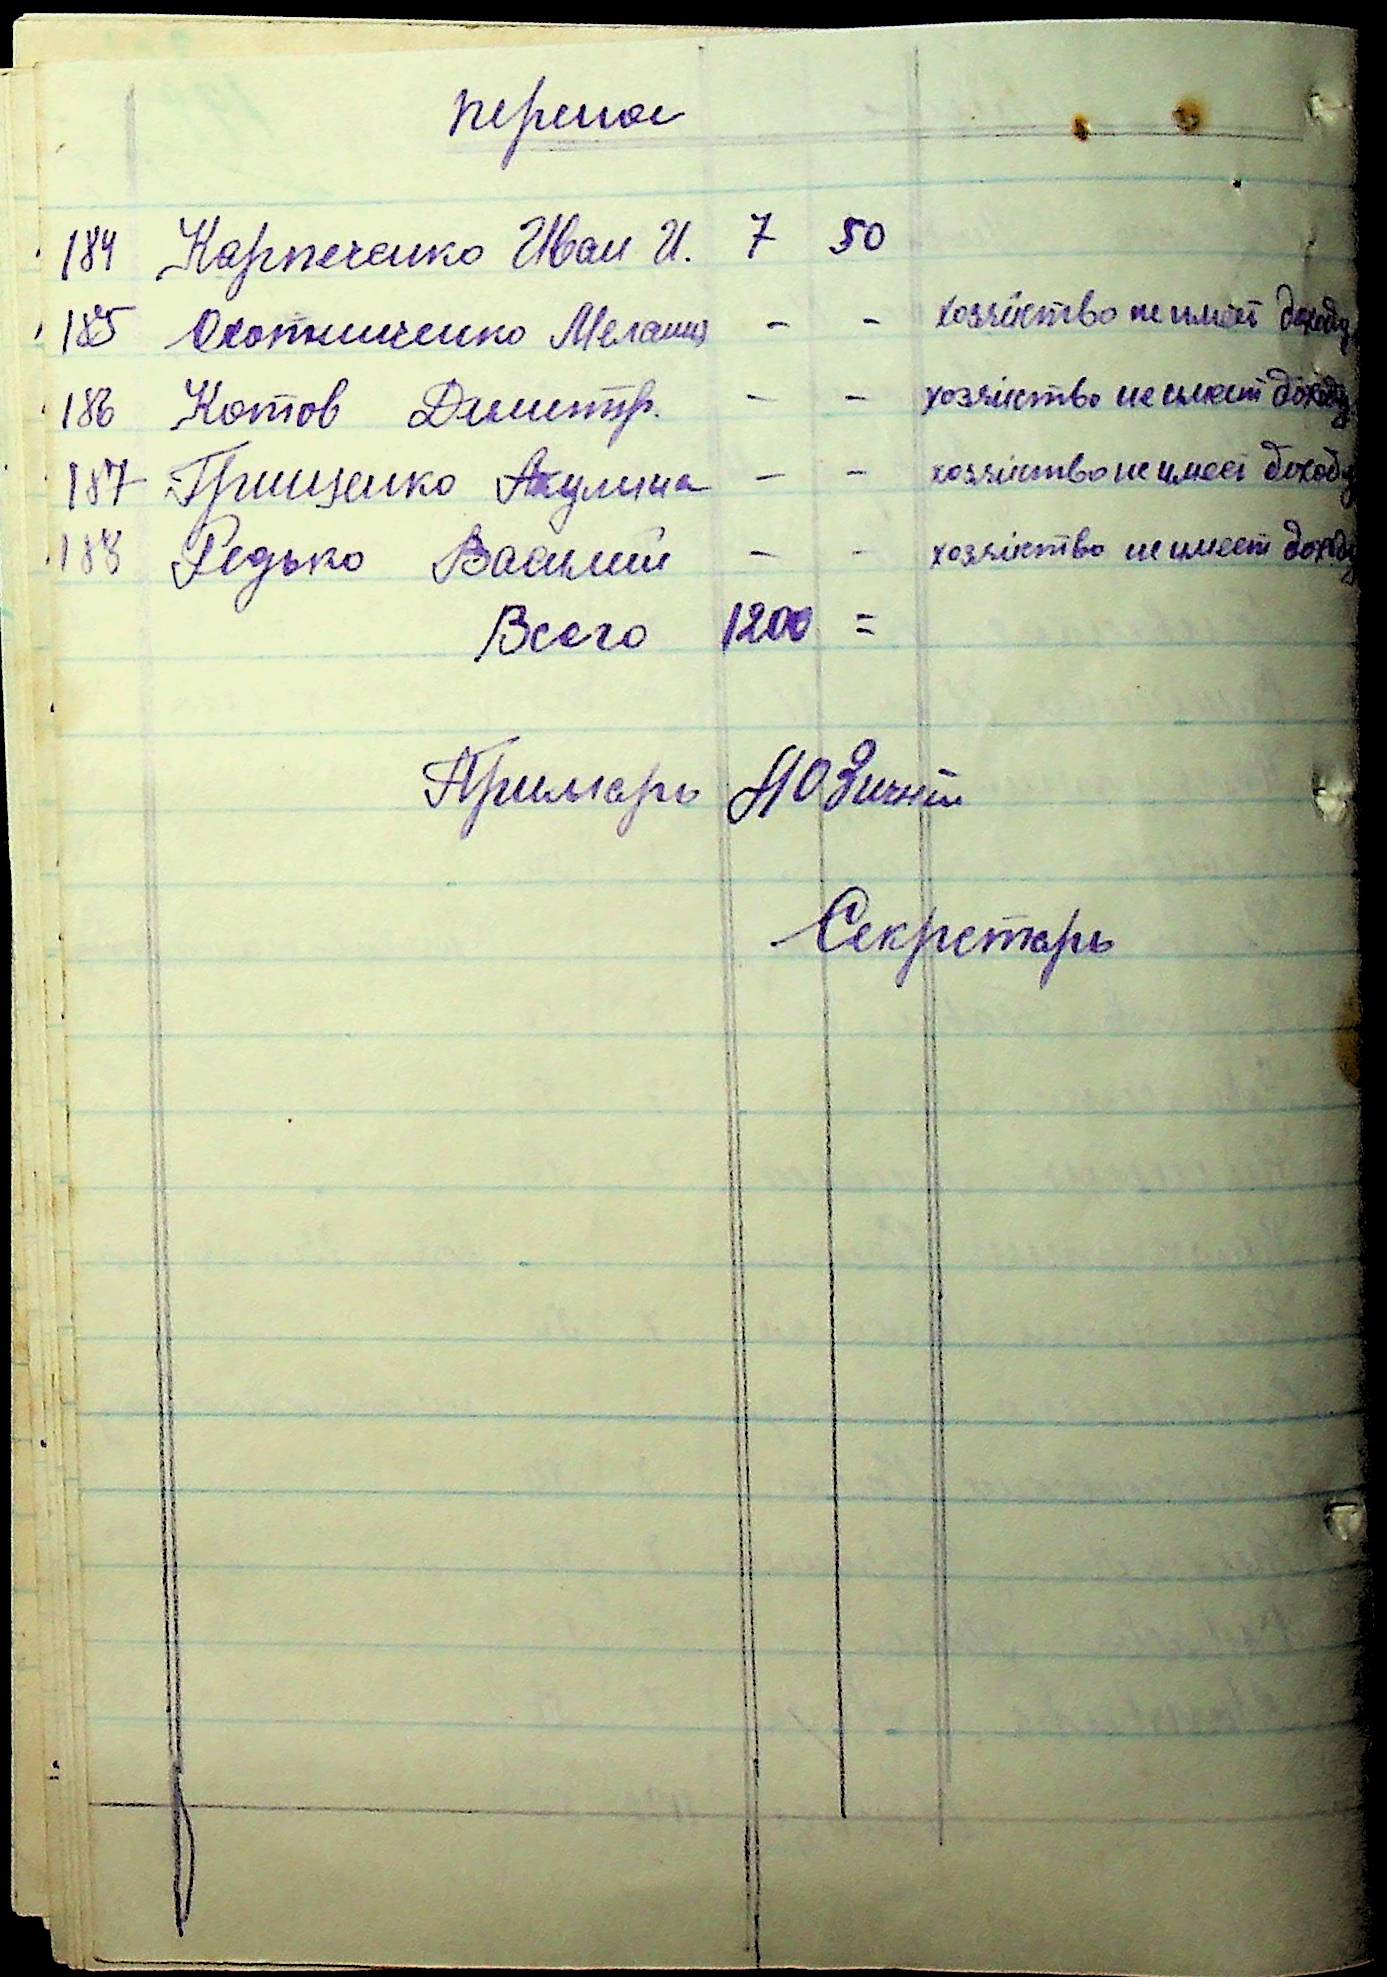 перенос
184 Карпеченко Иван И. 7 50
185 Охотниченко Мелания - - хозяйство не имеет доходу
186 Котов Димитр. - - хозяйство не имеет доходу
187 Грищенко Акулина - - хозяйство не имеет доходу
188 Редько Василий - - хозяйство не имеет доходу
Всего 1200 =
Примарь
Секретарь